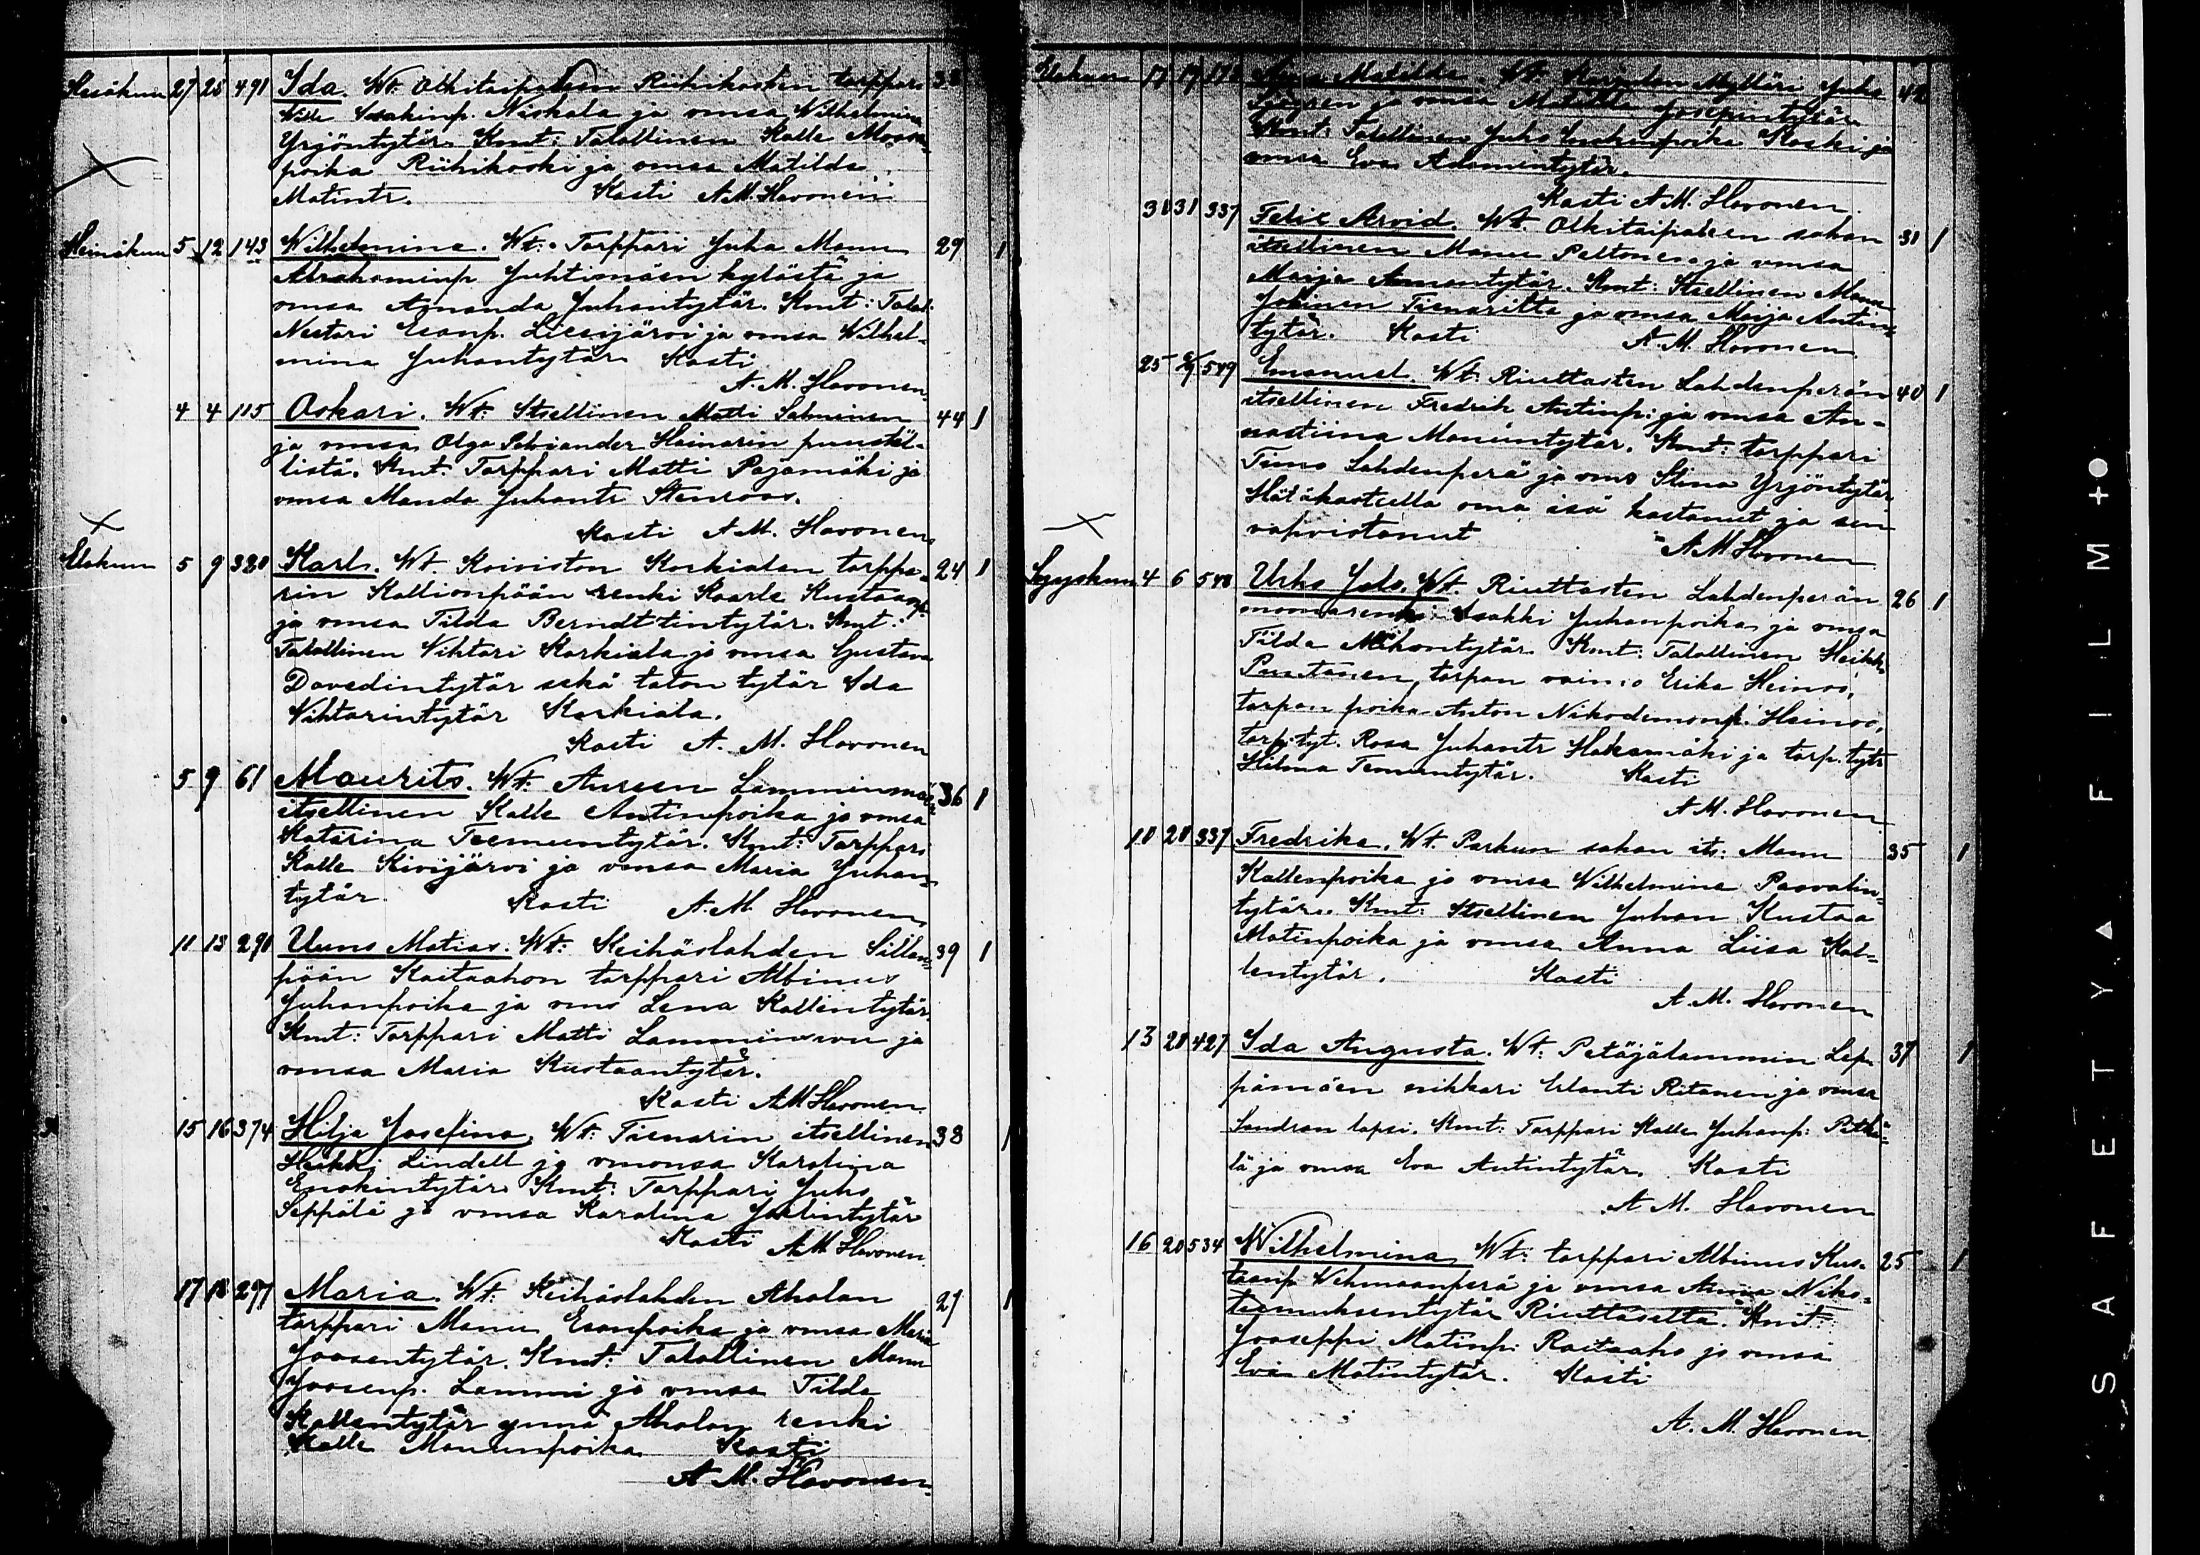 Kesäkuu 27 28 491 Ida. Wt. Olkitaipaleen Riihikosken torppari 38
Ville Isakinp. Niskala ja vmsa Wilhelmina
Yrjöntytär. Kmt: Talollinen Kalle
poika Riihikoski ja vmsa Matilda
Matintr. Kasti A. M. Havonen
Heinäkuu 5 12 143 Wilhelmina. Wt. Torppari Juha Manu 29 1
Abrahaminp Juhtimäen kylästä ja
vmsa Amanda Juhantytär. Kmt: Talol.
Nestori Esanp. Liesijärvi ja vmsa Wilhel-
mina Juhantytär Kasti
A. M. Havonen
4 4 115 Oskari. Wt. Itsellinen Matti Salminen 44 1
ja vmsa Olga Heinarin puustel-
listä. Kmt. Torppari Matti Pajamäki ja
vmsa Manda Juhantr Stenroos.
Kasti A. M. Havonen
Elokuu 5 9 320 Karl. Wt Koiviston Korkialan torppa- 24 1
rin Kallionpään renki Kaarle Kustaanp.
ja vmsa Tilda Berndttintytär. Kmt.:
Talollinen Vihtori Korkiala ja vmsa Gustava
Davedintytär sekä talon tytär Ida
Vihtorintytär Korkiala.
Kasti A. M. Havonen
5 9 61 Maurits. Wt. Aureen Lamminmäen 36 1
itsellinen Kalle Antinpoika ja vmsa
Katarina Teemuntytär. Kmt: Torppari
Kalle Kivijärvi ja vmsa Maria Juhan-
tytär. Kasti A. M. Havonen
11 13 290 Uuno Matias. Wt: Keihäslahden Sillan- 39 1
pään Raitaahon torppari Albinus
Juhanpoika ja vms Lena Kallentytär
Kmt: Torppari Matti ja
vmsa Maria Kustaantytär.
Kasti A M Havonen
15 16 374 Hilja Josefina. Wt: Tienarin itsellinen 38 1
Heikki Lindell ja vmonsa Karolina
Enokintytär Kmt: Torppari Juho
Seppälä ja vmsa Karolina
Kasti A. M. Havonen
17 18 297 Maria. Wt. Keihäslahden Aholan 29 1
torppari Manu Esanpoika ja vmsa Maria
Joosentytär. Kmt: Talollinen Manu
Joosenp. Lammi ja vmsa Tilda
Kallentytär ynnä Aholan renki
Kalle Manunpoika Kasti
A. M. Havonen
Elokuu 17 19 Matilda. Wt. Mylläri Juho 42
Sjögren ja vmsa Matilda Josepintytär
Kmt: Talollinen Juho Koski ja
vmsa Eva Adamintytär.
Kasti A. M. Havonen
31 31 337 Felix Arvid. Wt. Olkitaipaleen sahan 31 1
itsellinen Manu Peltonen ja vmsa
Maija Kmt: Itsellinen Manu
Tienaritta ja vmsa Maija Antin-
tytär. Kasti A. M. Havonen
25 549 Emanuel. Wt. Riuttasten Lahdenperän 40 1
itsellinen Fredrik Antinp: ja vmsa An-
nastiina Manuntytär. Kmt: torppari
Timo Lahdenperä ja vms Stina Yrjöntytär
Hätäkasteella oma isä kastanut ja sen
vahvistanut A. M. Havonen
Syyskuu 4 6 548 Urho Jalo. Wt. Riuttasten Lahdenperän 26 1
Isakki Juhanpoika ja vmsa
Tilda Kmt: Talollinen Heikki
torpan vaimo Erika Heinoo,
torpan poika Anton Nikodemonp: Heinoo,
torp. tyt. Rosa Juhantr Hakamäki ja torp. tytr
Hilma Teemuntytär. Kasti
A. M. Havonen
10 20 337 Fredrika. Wt. Parkun sahan its. Manu 35 1
Kallenpoika ja vmsa Wilhelmina Paavalin-
tytär. Kmt: Itsellinen Juhan Kustaa
Matinpoika ja vmsa Anna Liisa Kal-
lentytär. Kasti
A. M. Havonen
13 20 427 Ida Augusta. Wt: Petäjälammin Lep- 37 1
pämäen nikkari Ritanen ja vmsa
Sandran lapsi. Kmt: Torppari Kalle Juhanp: Pitkä-
lä ja vmsa Eva Antintytär. Kasti
A. M. Havonen
16 20 534 Wilhelmina Wt: torppari Albinus Kus- 25 1
taanp Vehmaanperä ja vmsa Anna Niko-
Riuttasilta. Kmt:
Jooseppi Matinp: Raitaaho ja vmsa
Eva Matintytär. Kasti
A. M. Havonen
SAFETY ▲ FILM +●